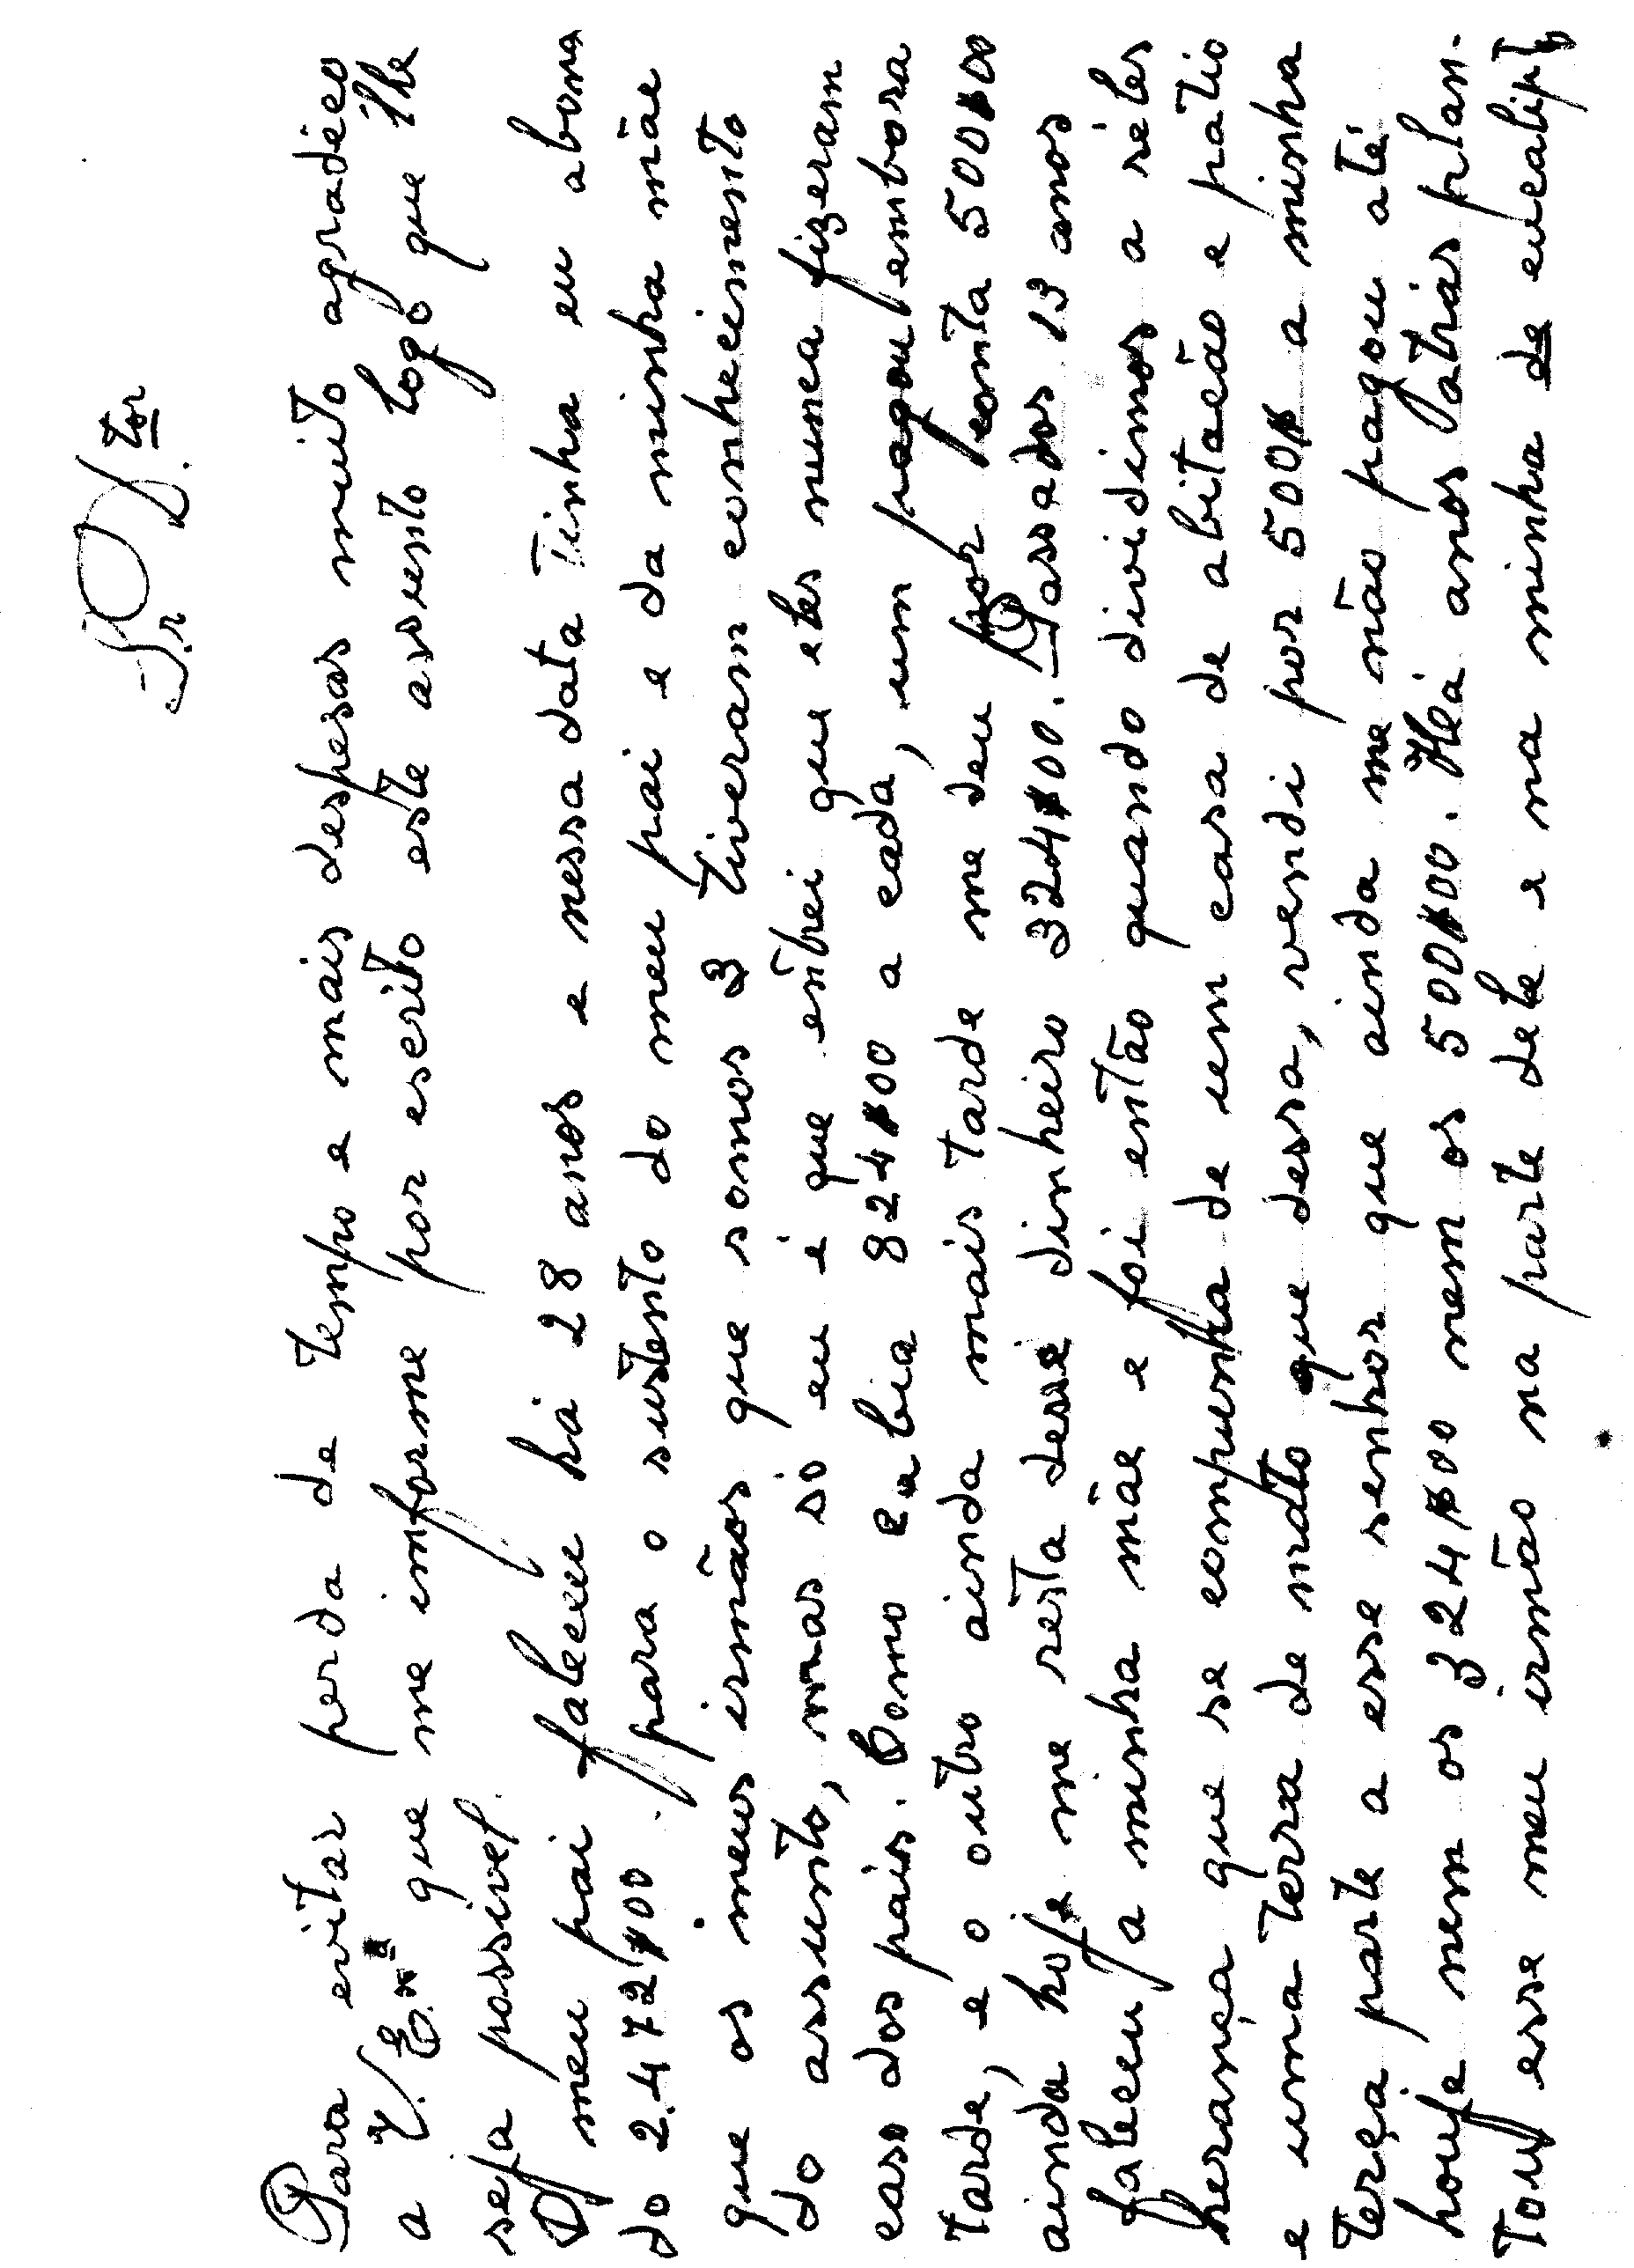 Sr. Dtor
Para evitar perda de tempo e mais despesas muito agradeço
a V. Ex.a que me informe por escrito este assunto logo que lhe
seja possivel.
O meu pai faleceu há 28 anos e nessa data tinha eu abona
do 2.472$00 para o sustento do meu pai e da minha mãe
que os meus irmãos que somos 3 tiveram conhecimento
do assunto, mas só eu é que entrei que eles nunca fizeram
caso dos pais. Como cabia 824$00 a cada, um pagou embora
tarde, e o outro ainda mais tarde me deu por conta 500$00
ainda hoje me resta desse dinheiro 324$00. Passados 13 anos
faleceu a minha mãe e foi então quando dividimos a réles
herança que se compunha de um casa de abitacão e patio
e uma terra de mato que dessa, vendi por 500$ a minha
terça parte a esse senhor que ainda me não pagou até
houje nem os 324$00 nem os 500$00. Há anos atrás plan-
tou esse meu irmão na parte dele e na minha de eucalipt